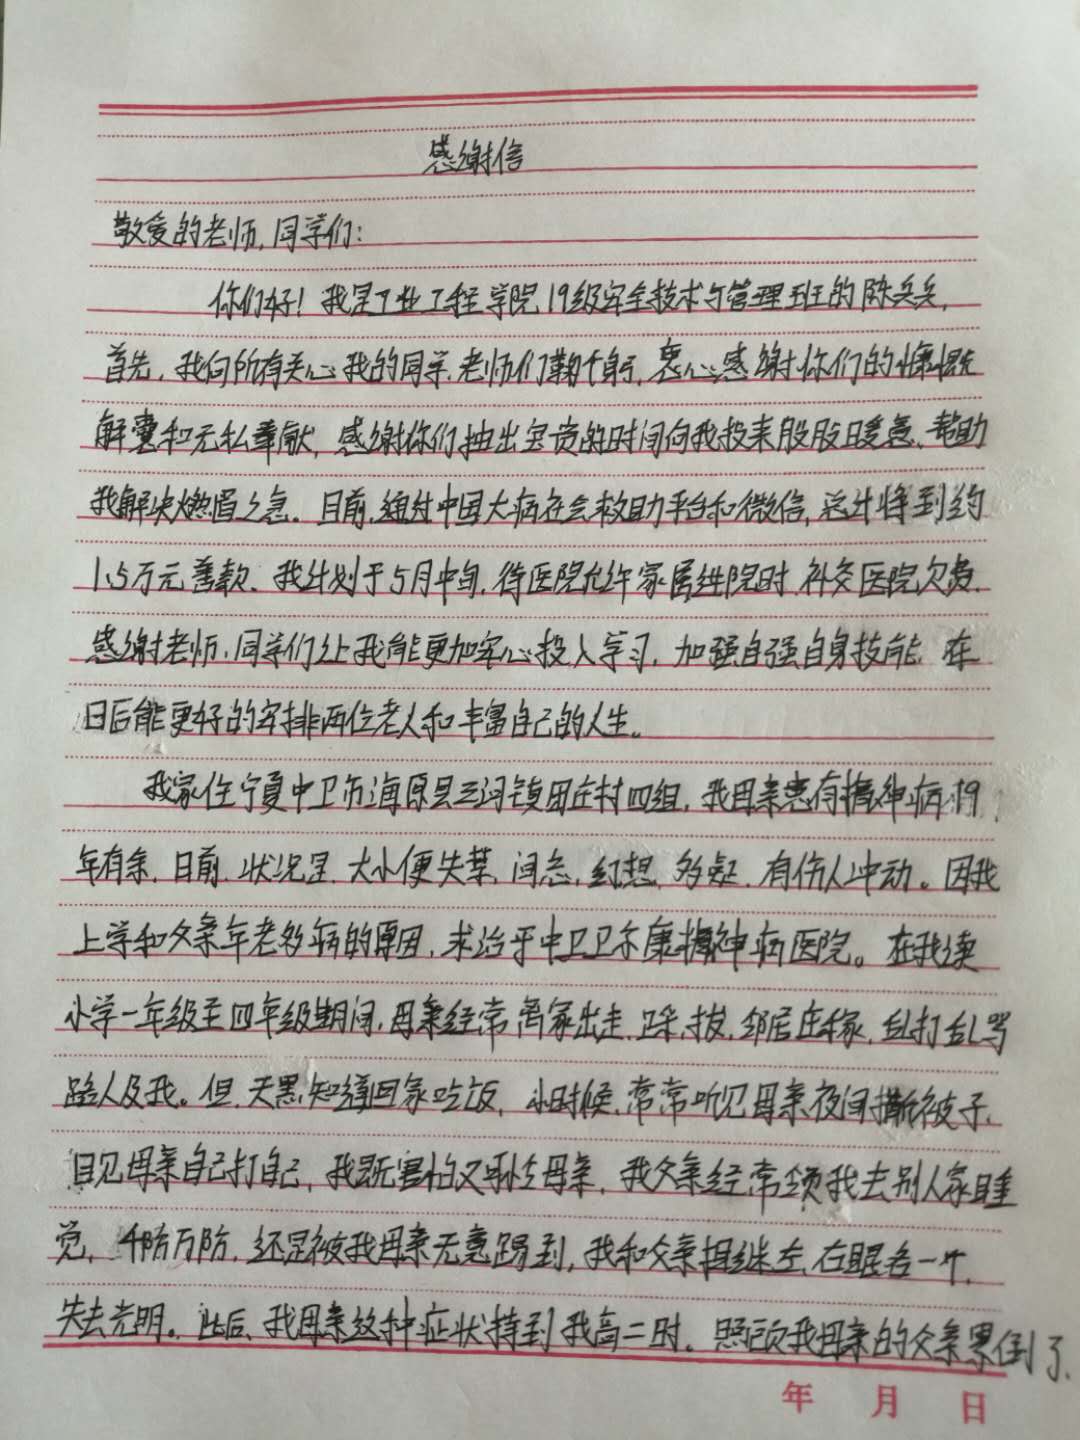 感谢信
敬爱的老师,同学们:
你们好!我是工业工程学院19级安全技术与管理班的陈兵兵,
首先,我向所有关心我的同学,老师们鞠个躬,衷心感谢你们的慷慨
解囊和无私奉献,感谢你们抽出宝贵的时间向我投来股股暖意、帮助
我解决燃眉之急。目前,通过中国大病社会救助平台和微信,总计将到约
1.5万元善款、我计划于5月中旬,待医院允许家属进院时,补交医院欠费、
感谢老师,同学们让我能更加安心投入学习,加强自强自身技能,在
日后能更好的安排两位老人和丰富自己的人生。
我家住宁夏中卫市海原县三河镇团庄村四组,我母亲患有精神病19
年有余,目前,状况呈,大小便失禁,闷急,幻想,多疑,有伤人冲动。因我
上学和父亲年老多病的原因,求治于中卫卫尔康精神病医院。在我读
小学一年级至四年级期间,母亲经常离家出走,踩,拔,邻居庄稼,乱打乱骂
路人及我。但,天黑知道回家吃饭,小时候,常常听见母亲夜间撕被子,
目见母亲自己打自己,我既害怕又心疼母亲,我父亲经常领我去别人家睡
觉,千防万防,还是被我母亲无意踢到,我和父亲相继左,右眼各一个,
失去光明。此后,我母亲这种症状持到我高二时。照顾我母亲的父亲累倒了,
年 月 日